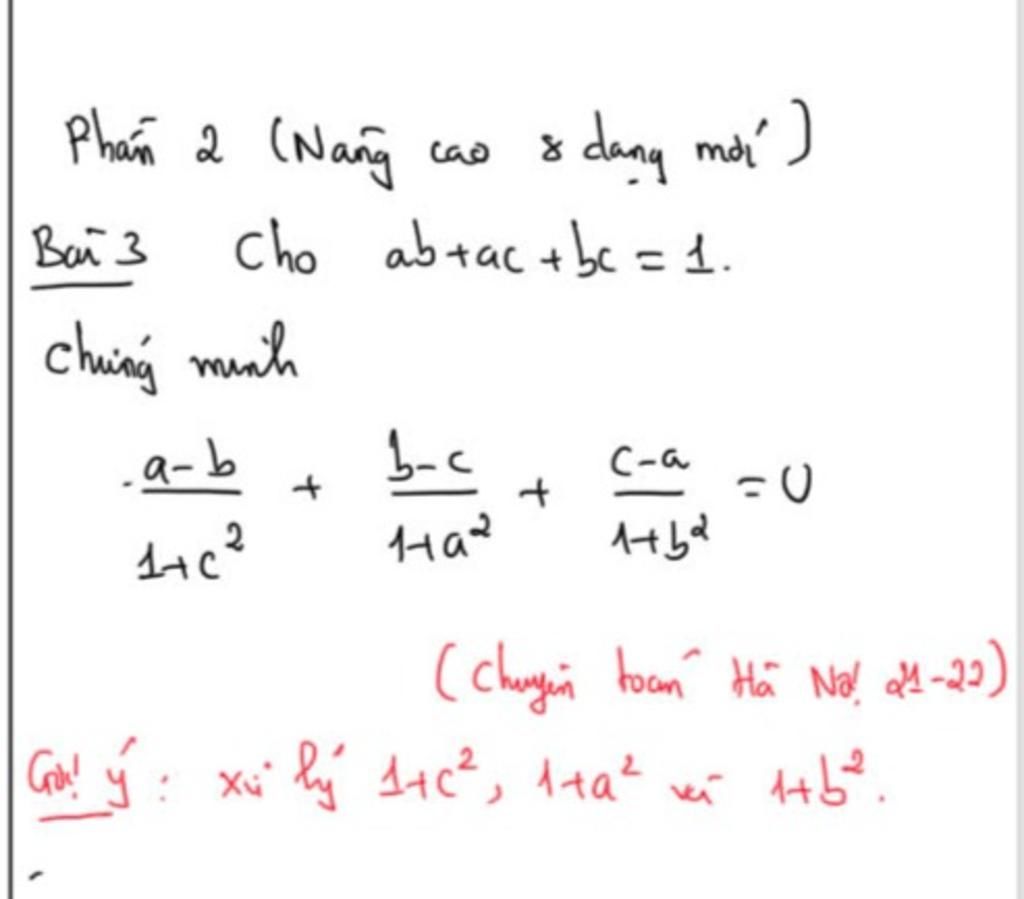 Phần 2 (Nâng cao & dạng mới)
Bài 3 Cho ab+ac+bc=1.
Chứng minh
a-b/1+c² + b-c/1+a² + c-a/1+b² = 0
(Chuyên toán Hà Nội 21-22)
Gợi ý: xử lý 1+c², 1+a² và 1+b².